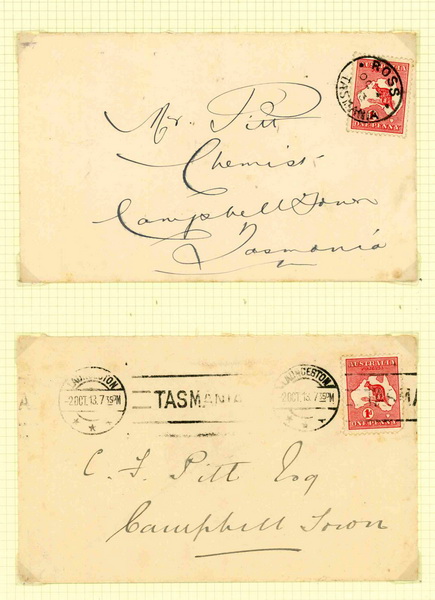 AUSTRALIA
ROSS
TASMANIA
ONE PENNY
Mr. Pitt
Chemist
Campbell Town
Tasmania
LAUNCESTON
-2 OCT. 13. 7 15PM
TASMANIA
LAUNCESTON
-2 OCT. 13. 7 15PM
AUSTRALIA
POSTAGE
1D
ONE PENNY
C. F. Pitt Esq
Campbell Town